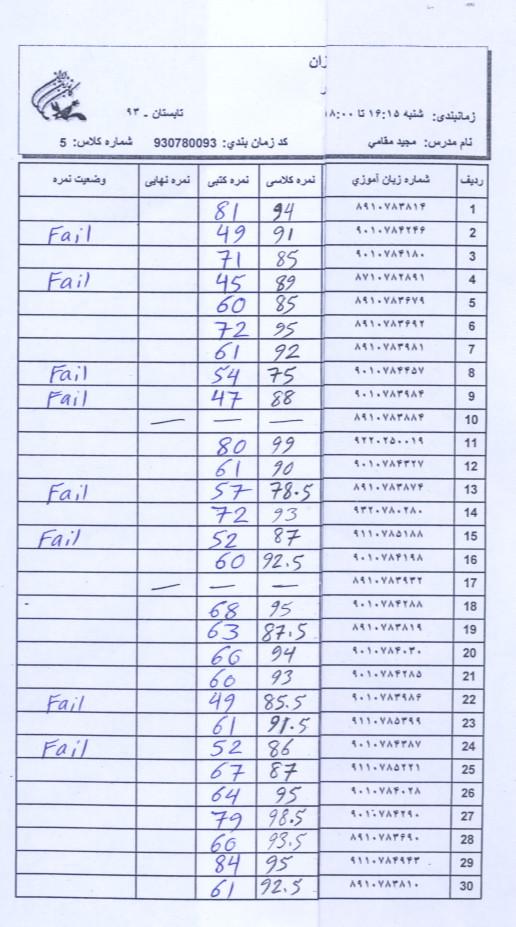 زان
زمانبندی: شنبه ۱۶:۱۵ تا ۱۸:۰۰ تابستان - ۹۳
نام مدرس: مجید مقامی کد زمان بندی: 930780093 شماره کلاس: 5
ردیف شماره زبان آموزی نمره کلاسی نمره کتبی نمره نهایی وضعیت نمره
1 ۸۹۱۰۷۸۳۸۱۴ 94 81
2 ۹۰۱۰۷۸۴۲۴۶ 91 49 Fail
3 ۹۰۱۰۷۸۴۱۸۰ 85 71
4 ۸۷۱۰۷۸۲۸۹۱ 89 45 Fail
5 ۸۹۱۰۷۸۳۶۷۹ 85 60
6 ۸۹۱۰۷۸۳۶۹۲ 95 72
7 ۸۹۱۰۷۸۳۹۸۱ 92 61
8 ۹۰۱۰۷۸۴۴۵۷ 75 54 Fail
9 ۹۰۱۰۷۸۳۹۸۴ 88 47 Fail
10 ۸۹۱۰۷۸۳۸۸۴ — — —
11 ۹۲۲۰۲۵۰۰۱۹ 99 80
12 ۹۰۱۰۷۸۴۳۲۷ 90 61
13 ۸۹۱۰۷۸۳۸۷۴ 78.5 57 Fail
14 ۹۳۲۰۷۸۰۲۸۰ 93 72
15 ۹۱۱۰۷۸۵۱۸۸ 87 52 Fail
16 ۹۰۱۰۷۸۴۱۹۸ 92.5 60
17 ۸۹۱۰۷۸۳۹۳۲ — — —
18 ۹۰۱۰۷۸۴۲۸۸ 95 68
19 ۸۹۱۰۷۸۳۸۱۹ 87.5 63
20 ۹۰۱۰۷۸۴۰۳۰ 94 66
21 ۹۰۱۰۷۸۴۲۸۵ 93 60
22 ۹۰۱۰۷۸۳۹۸۶ 85.5 49 Fail
23 ۹۱۱۰۷۸۵۳۹۹ 91.5 61
24 ۹۰۱۰۷۸۴۳۸۷ 86 52 Fail
25 ۹۱۱۰۷۸۵۲۲۱ 87 67
26 ۹۰۱۰۷۸۴۰۲۸ 95 64
27 ۹۰۱۰۷۸۴۲۹۰ 98.5 79
28 ۸۹۱۰۷۸۳۶۹۰ 93.5 60
29 ۹۱۱۰۷۸۴۹۴۳ 95 84
30 ۸۹۱۰۷۸۳۸۱۰ 92.5 61